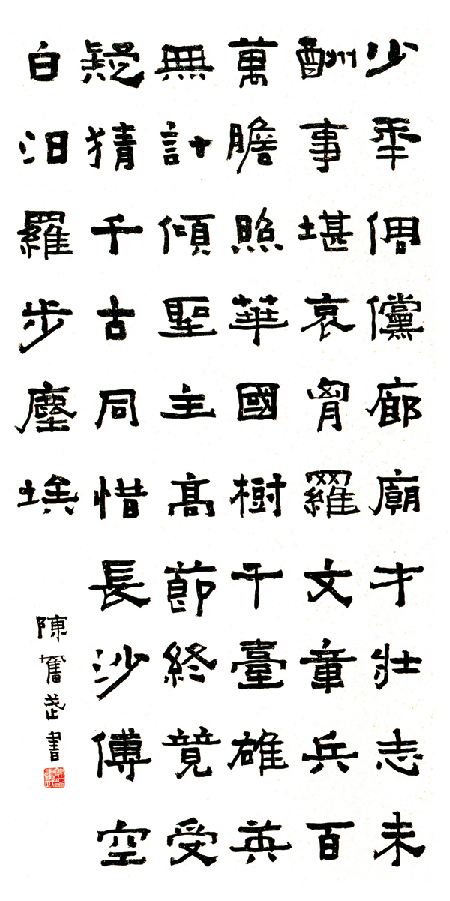 少年倜儻廊廟才壯志未
酬事堪哀胷羅文章兵百
萬膽照華國樹千臺雄英
無計傾聖主高節終竟受
疑猜千古同惜長沙傅空
白汨羅步塵埃
陳奮武書